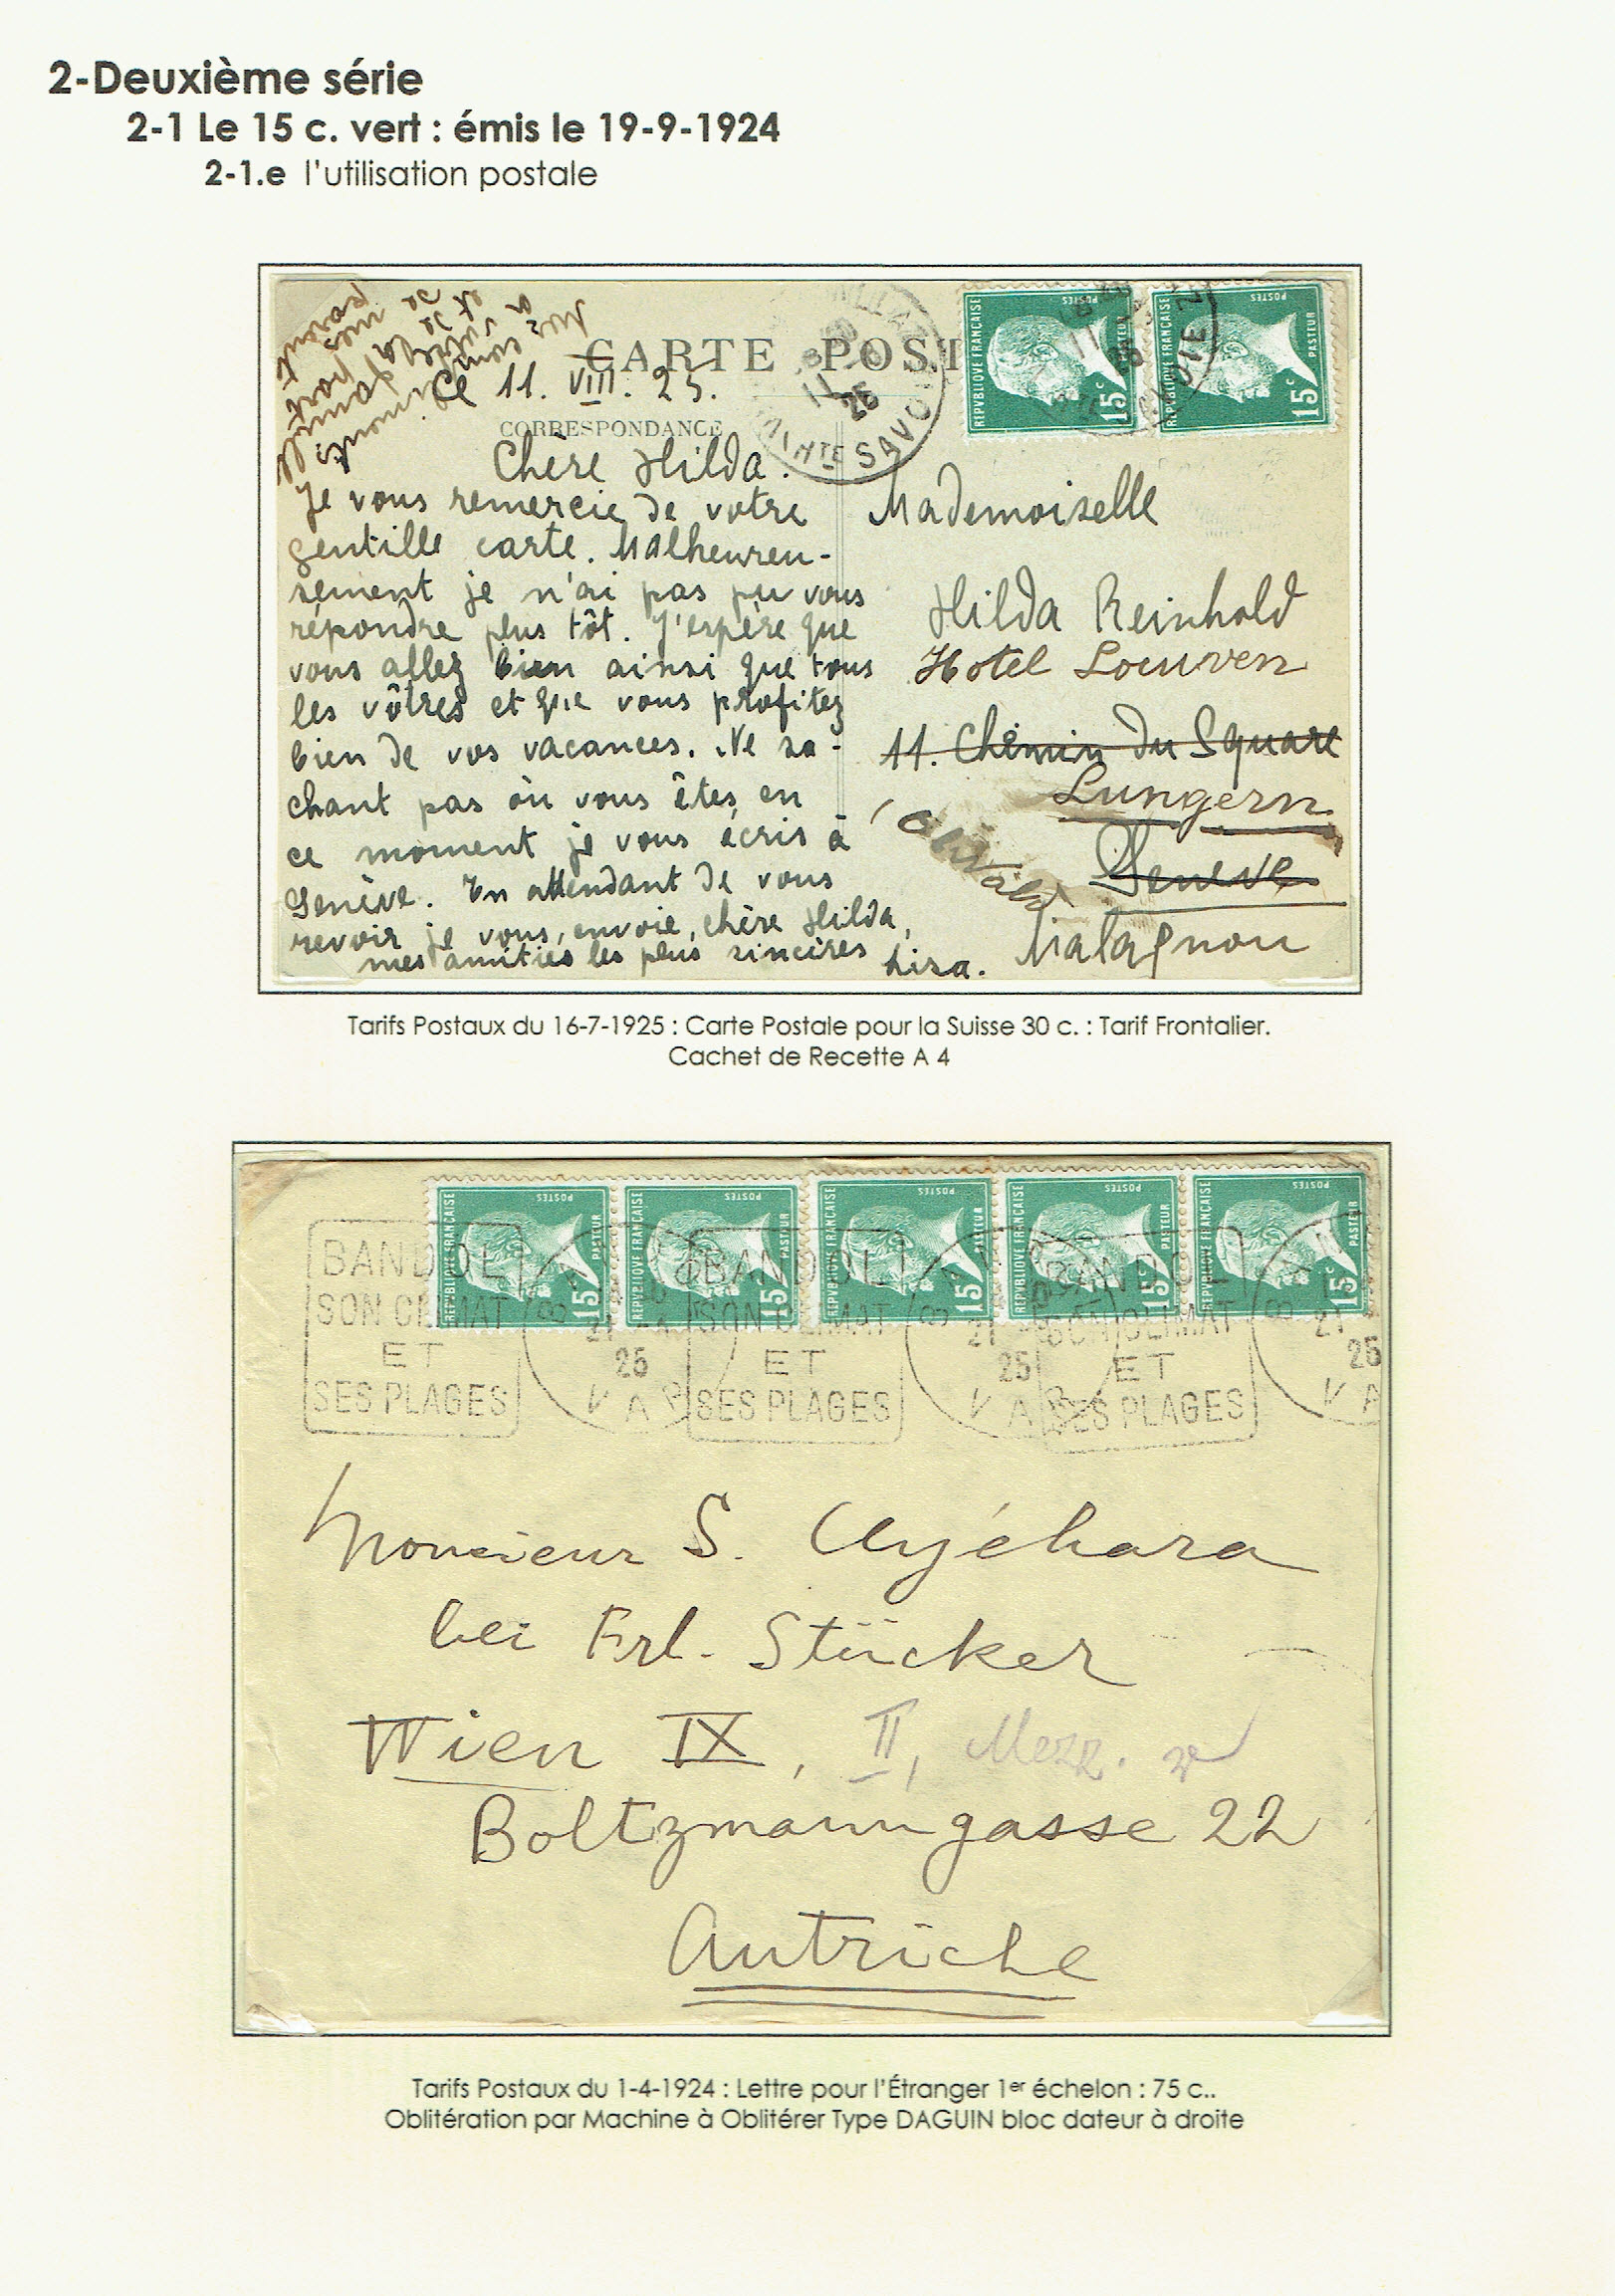 2-Deuxième série
2-1 Le 15 c. vert : émis le 19-9-1924
2-1.e l'utilisation postale
CARTE POST
CORRESPONDANCE
HTE SAVOIE
REPVBLIQVE FRANÇAISE POSTES PASTEUR 15c
REPVBLIQVE FRANÇAISE POSTES PASTEUR 15c
Ce 11. VIII. 25.
Chère Hilda.
Je vous remercie de votre
gentille carte. Malheureu-
sement je n'ai pas pu vous
répondre plus tôt. J'espère que
vous allez bien ainsi que tous
les vôtres et que vous profitez
bien de vos vacances. Ne sa-
chant pas où vous êtes en
ce moment je vous écris à
Genève. En attendant de vous
revoir je vous envoie, chère Hilda,
mes amitiés les plus sincères
Lisa.
Mademoiselle
Hilda Reinhold
Hotel Loewen
11. Chemin du Square
Lungern
Genève
Malagnou
Tarifs Postaux du 16-7-1925 : Carte Postale pour la Suisse 30 c. : Tarif Frontalier.
Cachet de Recette A 4
REPVBLIQVE FRANÇAISE POSTES PASTEUR 15c
REPVBLIQVE FRANÇAISE POSTES PASTEUR 15c
REPVBLIQVE FRANÇAISE POSTES PASTEUR 15c
REPVBLIQVE FRANÇAISE POSTES PASTEUR 15c
REPVBLIQVE FRANÇAISE POSTES PASTEUR 15c
BANDOL
SON CLIMAT
ET
SES PLAGES
25
VAR
BANDOL
SON CLIMAT
ET
SES PLAGES
25
VAR
BANDOL
SON CLIMAT
ET
SES PLAGES
25
VA
Monsieur S.
bei Frl. Stücker
Wien IX, II, Mezz.
Boltzmanngasse 22
Autriche
Tarifs Postaux du 1-4-1924 : Lettre pour l'Étranger 1er échelon : 75 c..
Oblitération par Machine à Oblitérer Type DAGUIN bloc dateur à droite